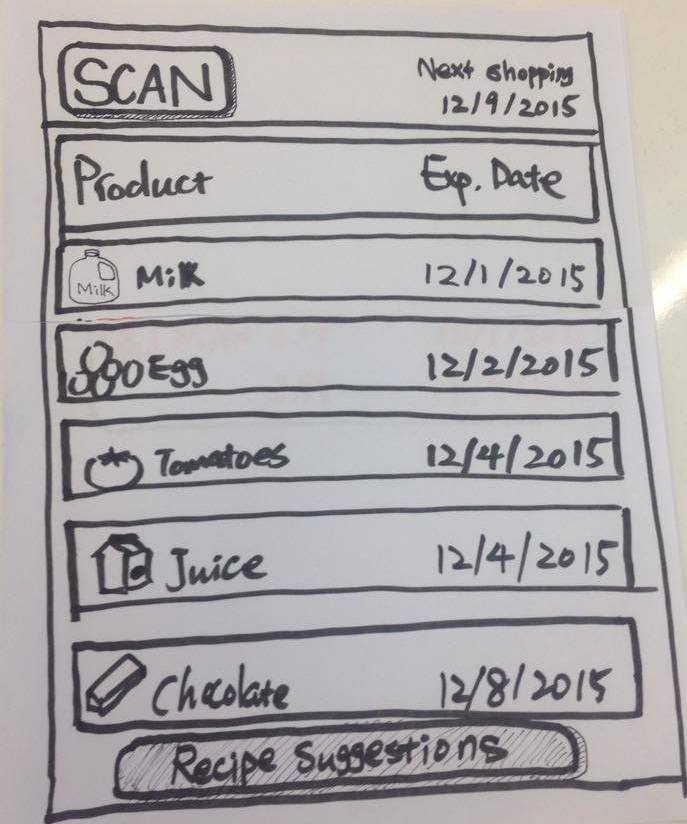 SCAN
Next shopping
12/9/2015
Product Exp. Date
Milk Milk 12/1/2015
Egg 12/2/2015
Tomatoes 12/4/2015
Juice 12/4/2015
Chocolate 12/8/2015
Recipe Suggestions